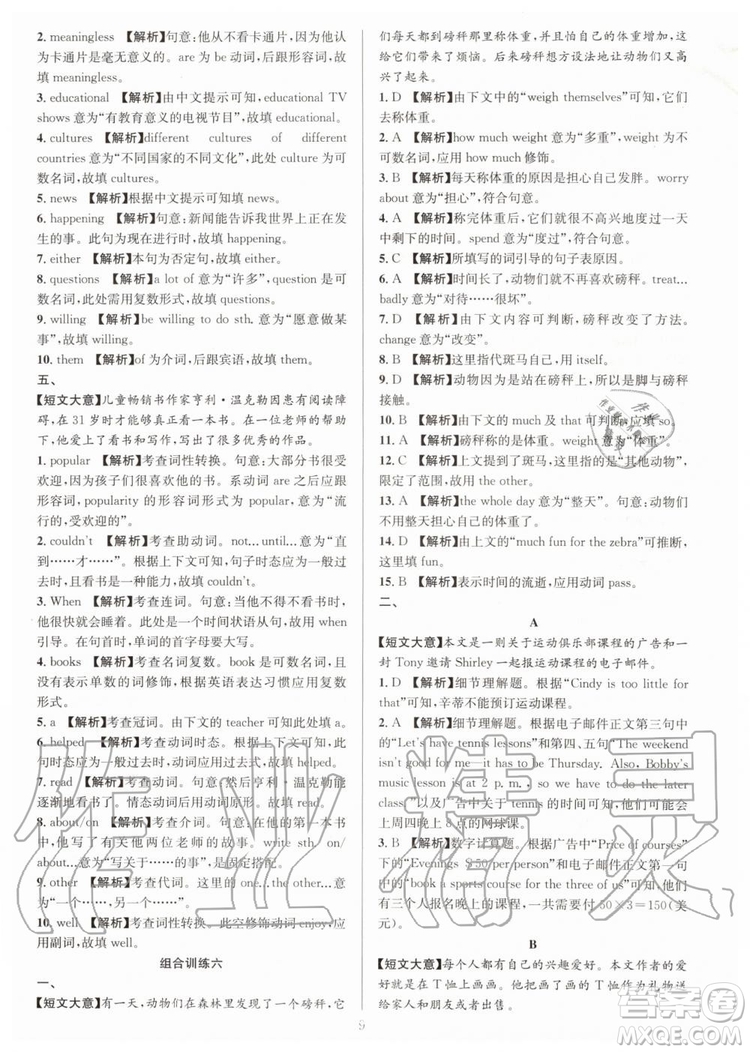 2. meaningless 【解析】句意：他从不看卡通片，他认
为卡通片是毫无意义的。are 为 be 动词，后跟形容词，故
填 meaningless。
3. educational 【解析】由中文提示可知，educational TV
shows 意为“有教育意义的电视节目”，故填 educational。
4. cultures 【解析】different cultures of different
countries 意为“不同国家的不同文化”，此处 culture 为可
数名词，故填 cultures。
5. news 【解析】根据中文提示可知，故填 news。
6. happening 【解析】句意：新闻能告诉我世界上正在发
生的事。此句为现在进行时，故填 happening。
7. either 【解析】句意：此句为否定句，故填 either。
8. questions 【解析】a lot of 意为“许多”，根据提示可知，
此处需用复数形式，故填 questions。
9. willing 【解析】be willing to do sth. 意为“愿意做某
事”，故填 willing。
10. them 【解析】of 为介词，后跟宾语，故填 them。
五、
【短文大意】儿童畅销书作家亨利·温克勒因患有阅读障
碍，在 31 岁时才能够阅读。在一位老师的帮助
下，他爱上了看书、写书，写出了很多优秀作品。
1. popular 【解析】考查词性转换。句意：大部分书很受
欢迎，因为孩子们喜欢这些书。系动词 are 之后应跟
形容词，popularity 的形容词形式为 popular，意为“流
行的，受欢迎的”。
2. couldn't 【解析】考查助动词。not…until…意为“直
到……才……”。根据上下文可知，句子时态应为一般过
去时，且此处是一种能力，故填 couldn't。
3. When 【解析】考查连词。句意：当人们不看书时，他
们很快就会睡着。此处是一个时间状语从句，故用 when
引导。句首，单词的首字母要大写。
4. books 【解析】考查名词复数。book 是可数名词，没有
表示单数的词修饰，且根据语境可知此处要用其复数
形式。
5. a 【解析】考查冠词。由下文的 teacher 可知填 a。
6. helped 【解析】考查动词时态。由上下文可知，句子的
时态应为一般过去时，故填 helped。
7. read 【解析】考查动词原形。句意：然后亨利·温克勒能
逐渐地看书了。情态动词后应跟动词原形，故填 read。
8. about/on 【解析】考查介词。句意：在他的第一本书
中，他写了有关两位老师的故事。write sth. on/about
意为“写关于……”。
9. other 【解析】考查固定词组。one…the other…意为“一
个……另一个……”。
10. well 【解析】考查词性转换。此空修饰动词 enjoy，应
用副词，故填 well。
组合训练六
一、
【短文大意】有一天，动物们在森林里发现一个磅秤，它
们发现可以用它来称自己的体重，但体重的增加却给
它们带来了烦恼。后来磅秤想方设法地让动物们又高
兴了起来。
1. D 【解析】由下文中的“weigh themselves”可知，它们
去称体重。
2. A 【解析】how much weight 意为“多重”，weight 为不
可数名词，应用 how much 修饰。
3. C 【解析】每天称体重的原因是担心自己发胖。worry
about 意为“担心”，符合句意。
4. A 【解析】称完体重后，它们会很高兴地度过一天
中剩下的时间。spend 意为“度过”，符合句意。
5. C 【解析】所填写的词引导的句子表原因。
6. A 【解析】时间长了，动物们不再喜欢磅秤。treat…
badly 意为“对待……很坏”。
7. D 【解析】由下文内容可知，磅秤改变了它的功能。
change 意为“改变”。
8. B 【解析】这里指代斑马自己，应用 itself。
9. D 【解析】动物因为站在磅秤上，所以它们的脚与磅秤
接触。
10. B 【解析】由下文的 much 及 that 可判断，应填 so。
11. D 【解析】磅秤称的是体重。weight 意为“体重”。
12. C 【解析】上文提到了斑马，此处意为“其他动物”，
限定了范围，故用 the other。
13. A 【解析】the whole day 意为“整天”。句意：动物们
不用整天担心自己的体重了。
14. D 【解析】由上文的“much fun for the zebra”可推断，
这里应填 fun。
15. B 【解析】表示时间的流逝，应用动词 pass。
二、
A
【短文大意】本文是一则关于运动俱乐部课程的广告和一
封 Tony 邀请 Shirley 一起报运动课程的电子邮件。
1. D 【解析】细节理解题。根据“Cindy is too little for
that”可知，辛蒂不能预订运动课程。
2. A 【解析】细节理解题。根据电子邮件正文第三句中
的“Let's have tennis lessons”和第四、五句“The weekend
isn't good for me—it has to be Thursday. Also, Bobby's
music lesson is at 2 p. m., so we need to do the later
class”以及广告中关于 tennis 的时间可知，他们会
上周四晚上 8 点的网球课。
3. B 【解析】数字计算题。根据广告中“Price of courses”
下的“Evenings $ 50/per person”和正文开头中的
“book a sports course for the three of us”可知，他们
有三个人报名晚上的课程，总共要付 50×3=150（美
元）。
B
【短文大意】每个人都有自己的兴趣爱好。本文作者的爱
好就是在 T 恤上画画。他把画了画的 T 恤作为礼物送
给家人和朋友或者出售。
9
作业精灵
答案圈
MXQE.COM